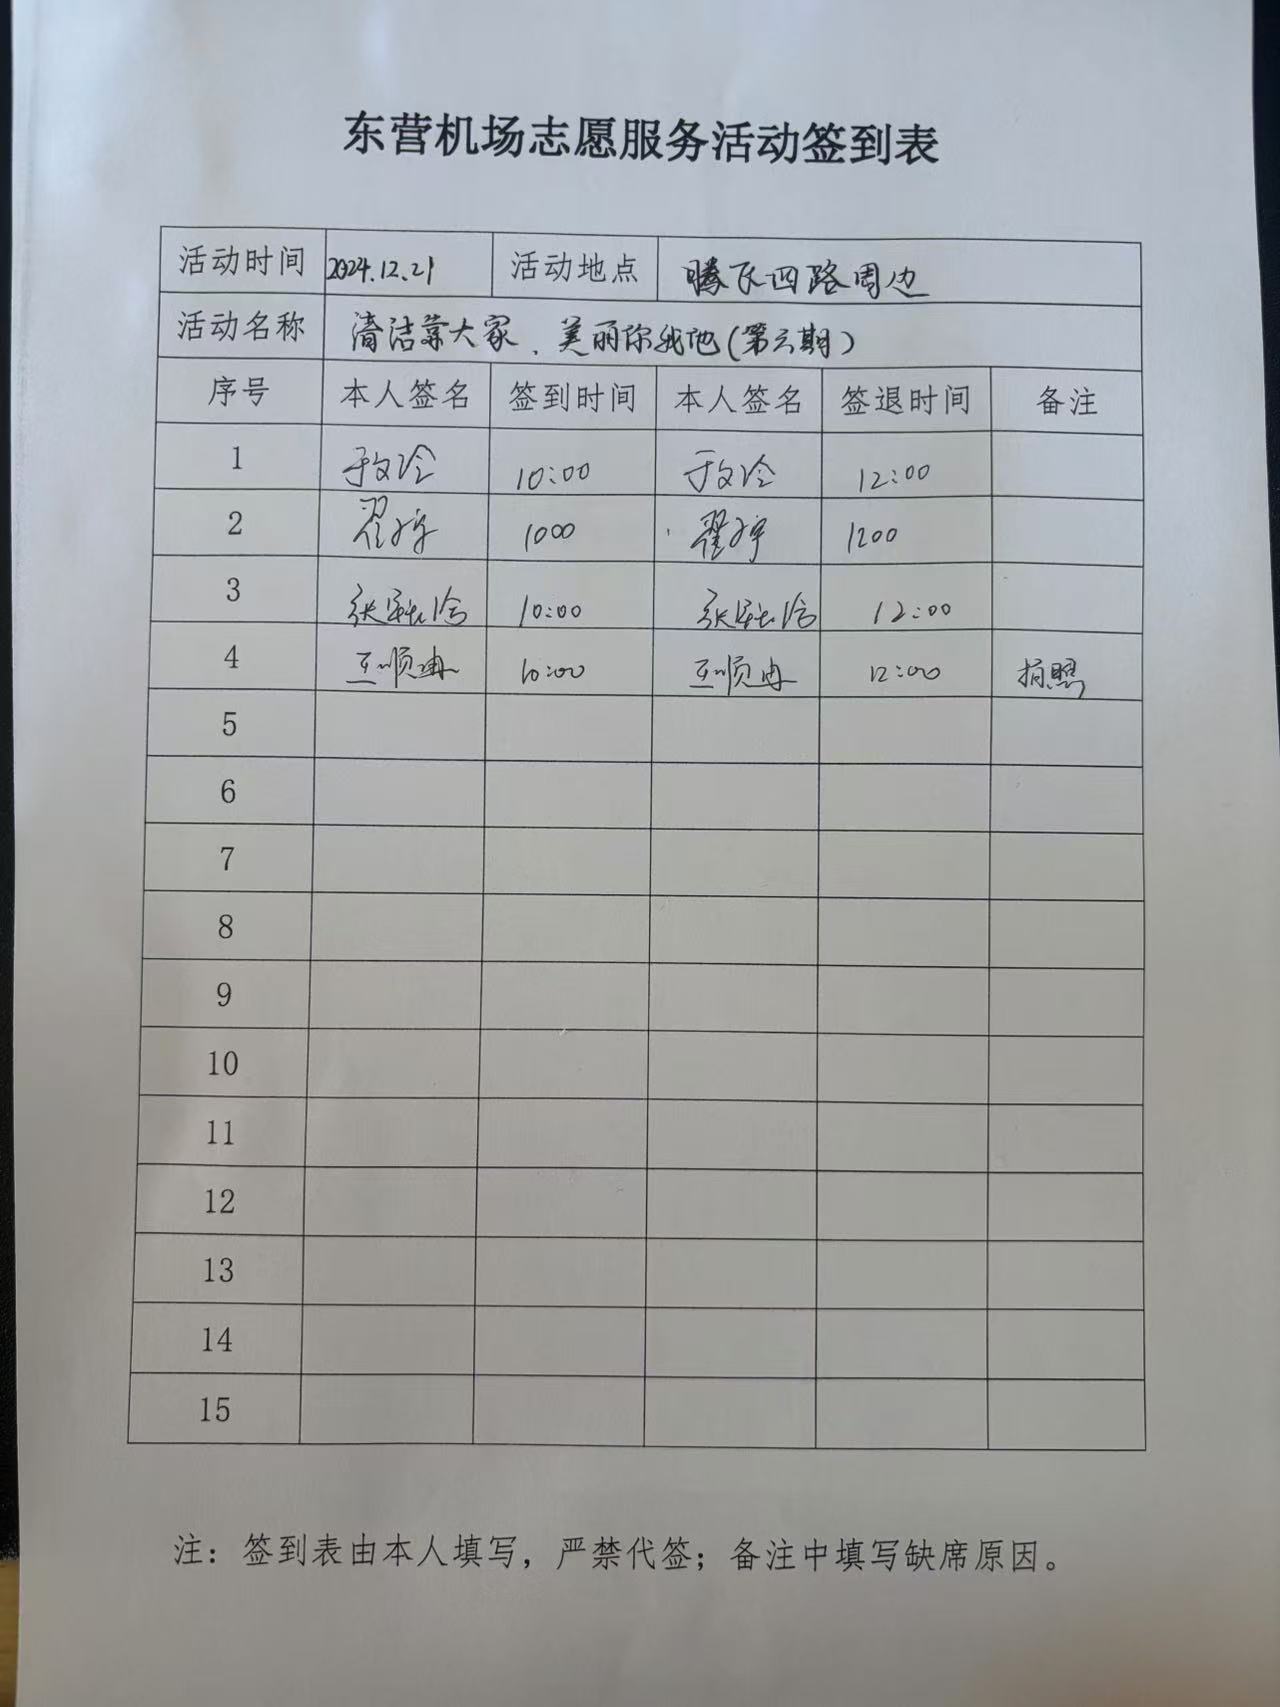 东营机场志愿服务活动签到表
活动时间 2024.12.21 活动地点 腾飞四路周边
活动名称 清洁靠大家、美丽你我他(第六期)
序号 本人签名 签到时间 本人签名 签退时间 备注
1 于文泠 10:00 于文泠 12:00
2 翟宇 1000 翟宇 1200
3 张 10:00 张 12:00
4 王顺冉 10:00 王顺冉 12:00 拍照
5
6
7
8
9
10
11
12
13
14
15
注：签到表由本人填写，严禁代签；备注中填写缺席原因。